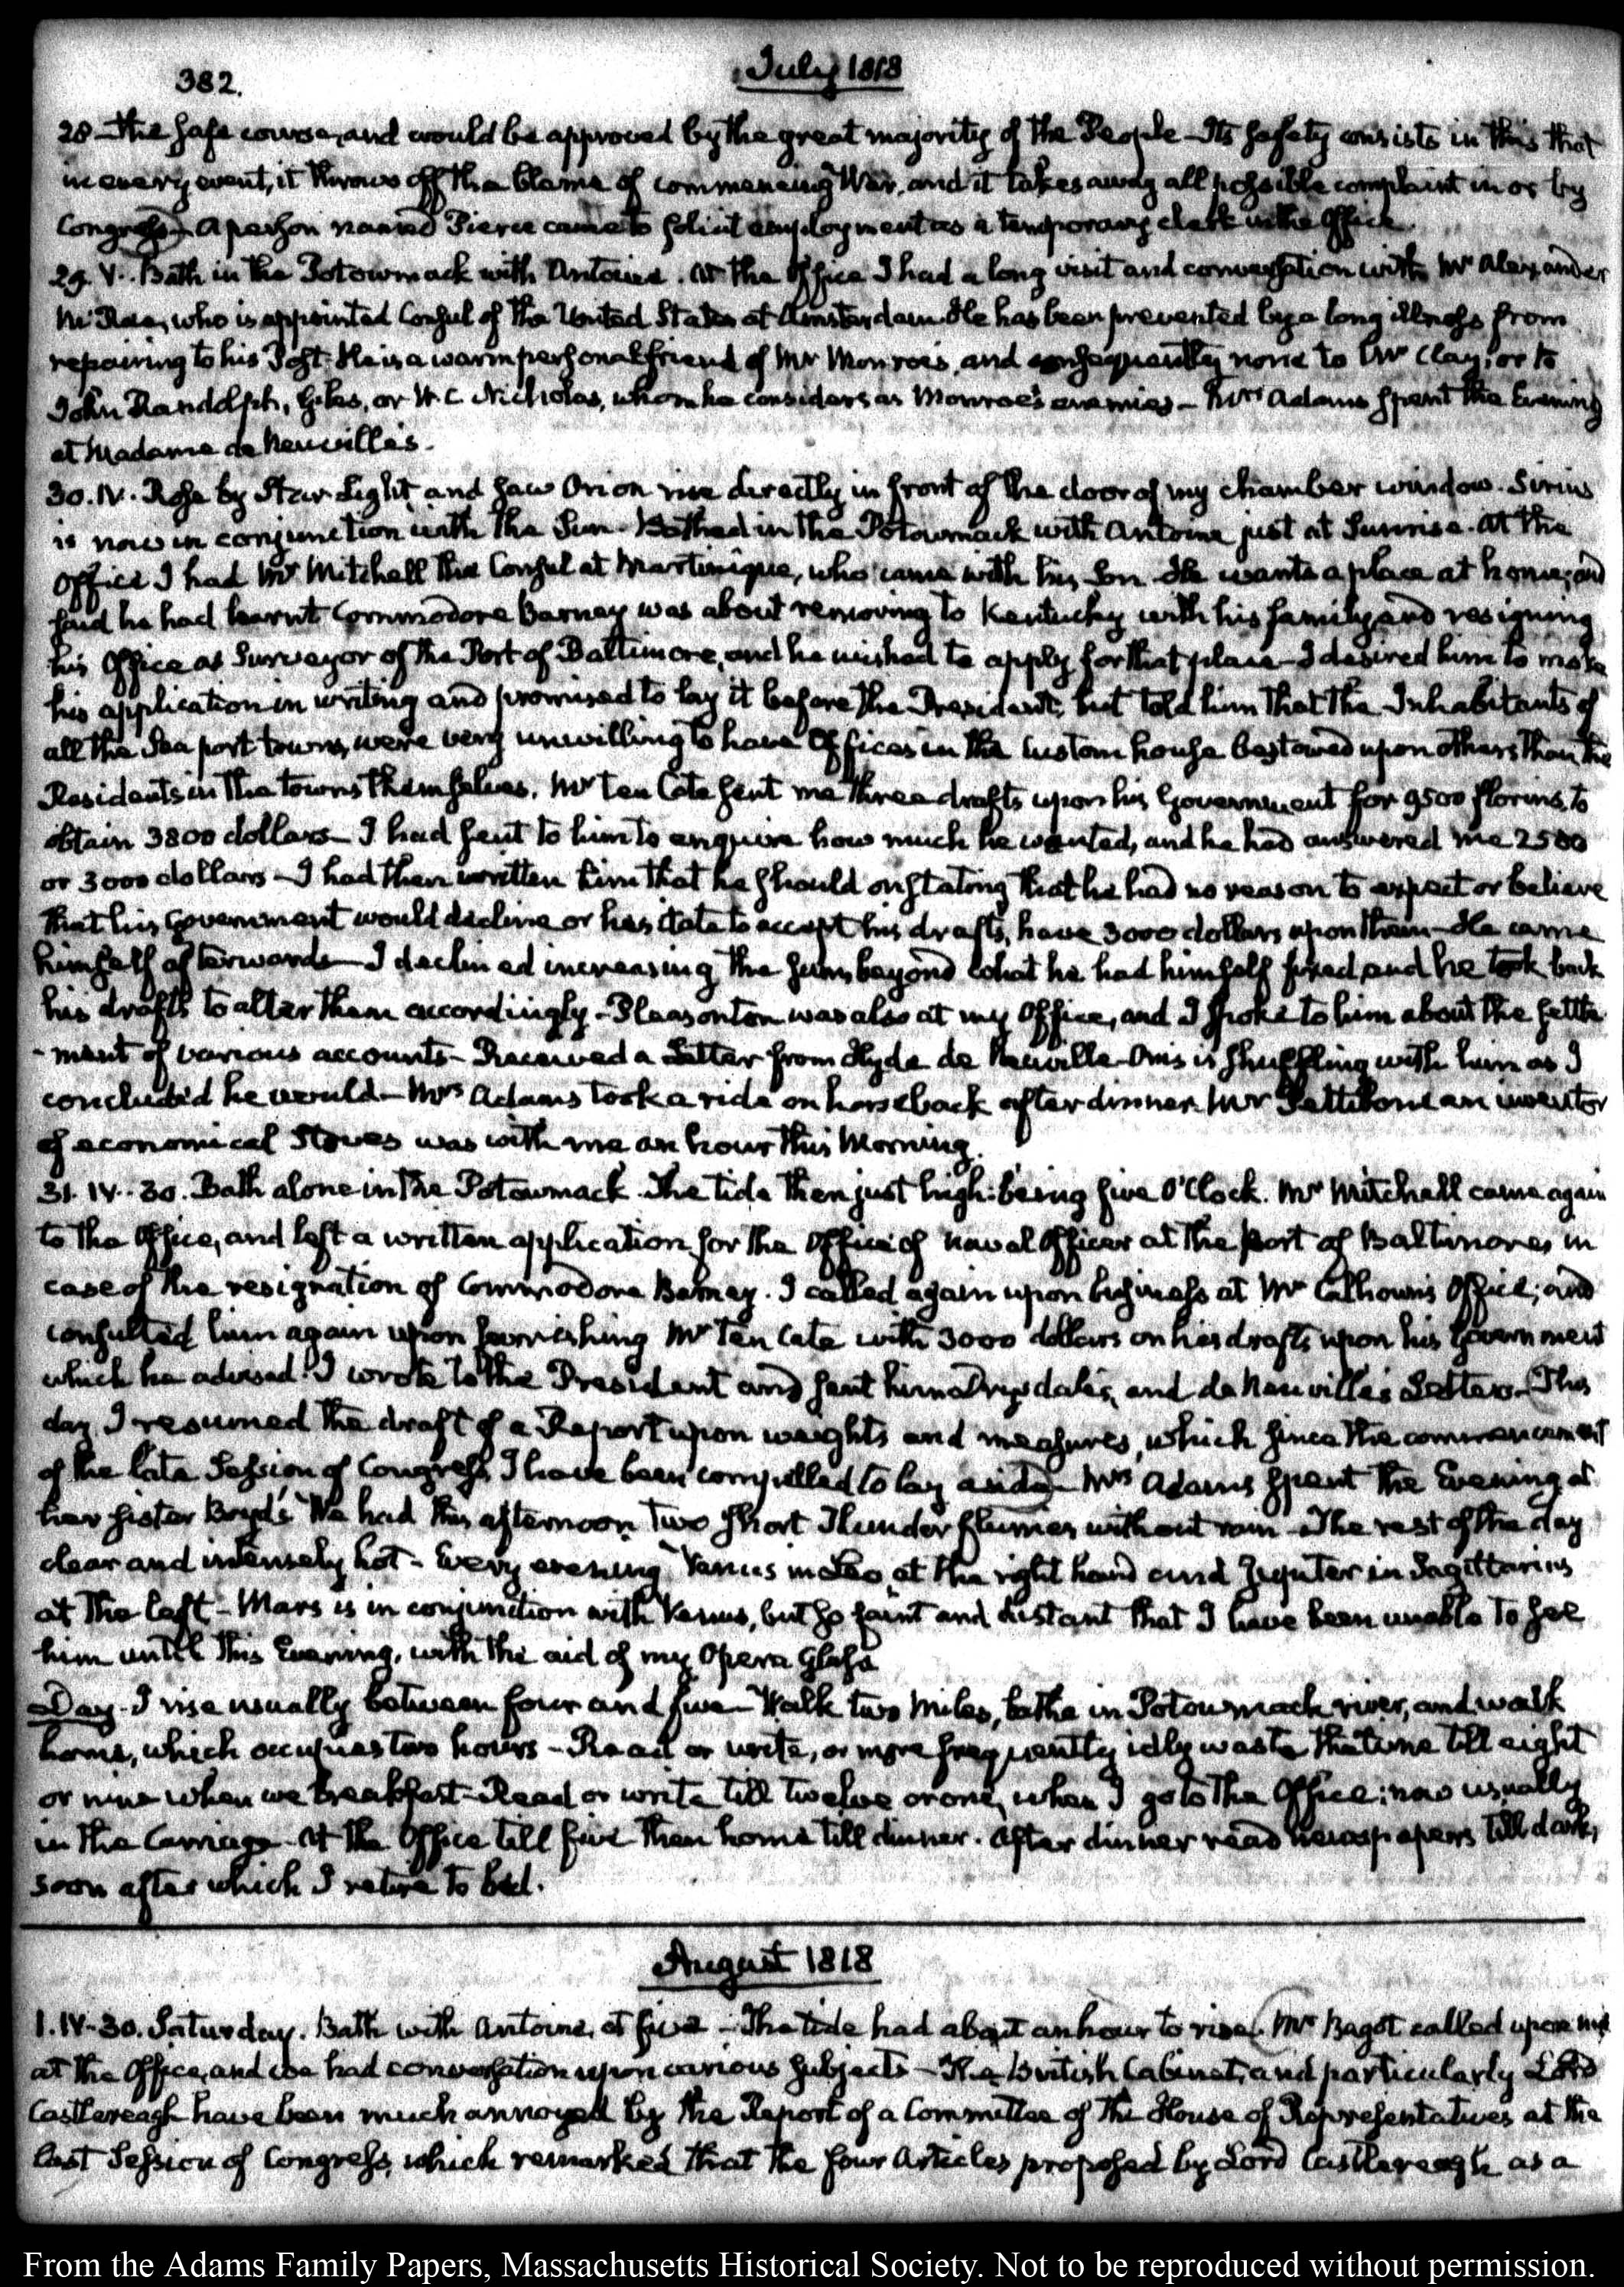 382.
July 1818
28 The safe course, and would be approved by the great majority of the People - Its safety consists in this that
in every event, it throws off the blame of commencing War, and it takes away all possible complaint in or by
Congress - A person named Pierce came to solicit employment as a temporary clerk in the Office.
29. V. Bath in the Potowmack with Antoine. At the Office I had a long visit and conversation with Mr Alexander
McRae, who is appointed Consul of the United States at Amsterdam. He has been prevented by a long illness from
repairing to his Post. He is a warm personal friend of Mr Monroe's, and consequently none to Mr Clay, or to
John Randolph, Giles, or W. C. Nicholas, whom he considers as Monroe's enemies - Mrs Adams spent the Evening
at Madame de Neuville's.
30. IV. Rose by Star Light and saw Orion rise directly in front of the door of my chamber window. Sirius
is now in conjunction with the Sun - Bathed in the Potowmack with Antoine just at Sunrise. At the
Office I had Mr Mitchell the Consul at Martinique, who came with his Son - He wants a place at home; and
said he had learnt Commodore Barney was about removing to Kentucky with his family and resigning
his Office as Surveyor of the Port of Baltimore, and he wished to apply for that place - I desired him to make
his application in writing and promised to lay it before the President; but told him that the Inhabitants of
all the Sea port towns, were very unwilling to have Offices in the Custom house bestowed upon others than the
Residents in the towns themselves. Mr Ten Cate sent me three drafts upon his Government for 9500 florins, to
obtain 3800 dollars - I had sent to him to enquire how much he wanted, and he had answered me 2500
or 3000 dollars - I had then written him that he should on stating that he had no reason to expect or believe
that his Government would decline or hesitate to accept his drafts, have 3000 dollars upon them - He came
himself afterwards - I declined increasing the sum beyond what he had himself fixed, and he took back
his drafts to alter them accordingly - Pleasonton was also at my Office, and I spoke to him about the settle
-ment of various accounts - Received a Letter from Hyde de Neuville - Onis is shuffling with him as I
concluded he would - Mrs Adams took a ride on horseback after dinner. Mr Pettibone an inventor
of economical Stoves was with me an hour this Morning.
31. IV. 30. Bath alone in the Potowmack. The tide then just high: being five O'Clock. Mr Mitchell came again
to the Office, and left a written application for the Office of Naval Officer at the port of Baltimore, in
case of the resignation of Commodore Barney. I called again upon business at Mr Calhoun's Office; and
consulted him again upon furnishing Mr Ten Cate with 3000 dollars on his drafts upon his Government
which he advised. I wrote to the President and sent him Drysdale's, and de Neuville's Letters - This
day I resumed the draft of a Report upon weights and measures, which since the commencement
of the late Session of Congress, I have been compelled to lay aside - Mrs Adams spent the Evening at
her sister Boyd's. We had this afternoon two short Thunder without rain - The rest of the day
clear and intensely hot - Every evening Venus in Leo at the right hand and Jupiter in Sagittarius
at the left - Mars is in conjunction with Venus, but so faint and distant that I have been unable to see
him until this Evening, with the aid of my Opera Glass
Day - I rise usually between four and five - Walk two miles, bathe in Potowmack river, and walk
home, which occupies two hours - Read or write, or more frequently idly waste the time till eight
or nine when we breakfast - Read or write till twelve or one, when I go to the Office; now usually
in the Carriage - At the Office till five then home till dinner. After dinner read newspapers till dark,
soon after which I retire to bed.
August 1818
1. IV-30. Saturday. Bath with Antoine, at five - The tide had about an hour to rise. Mr Bagot called upon me
at the Office, and we had conversation upon various subjects - The British Cabinet, and particularly Lord
Castlereagh have been much annoyed by the Report of a Committee of the House of Representatives at the
last Session of Congress, which remarked that the four Articles proposed by Lord Castlereagh as a
From the Adams Family Papers, Massachusetts Historical Society. Not to be reproduced without permission.